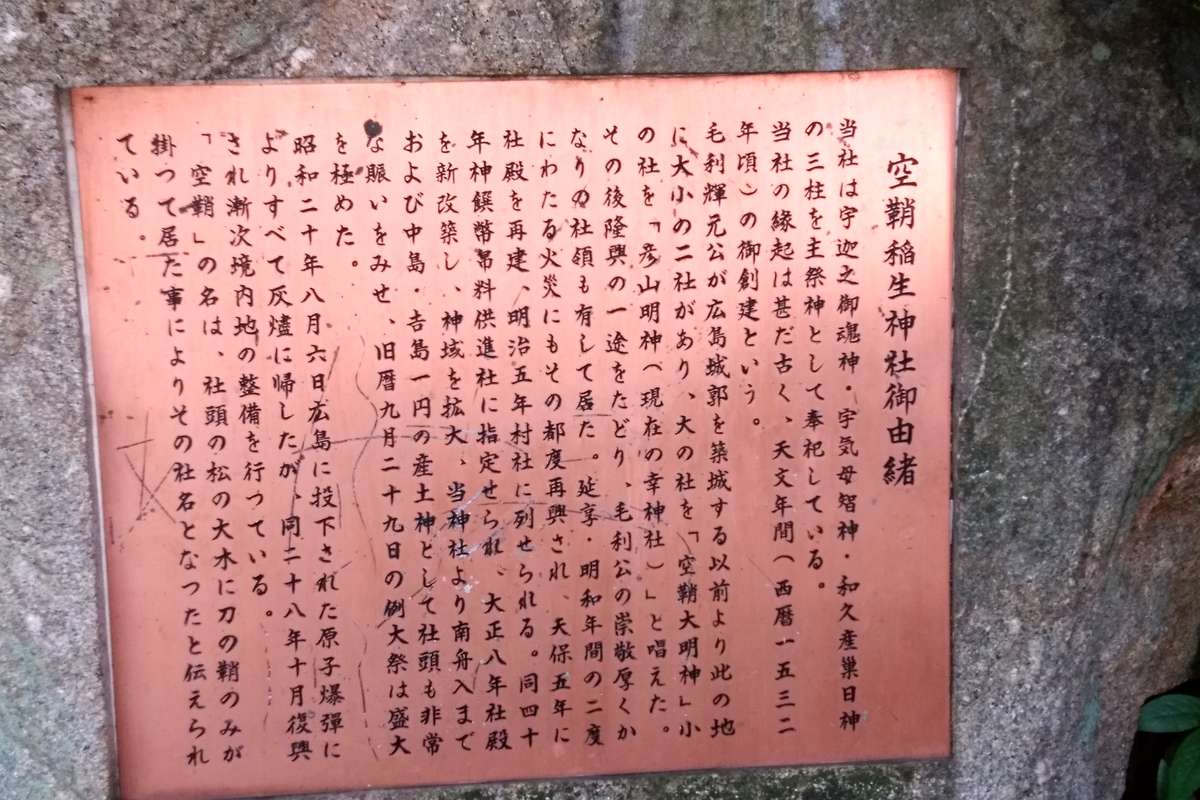 空鞘稲生神社御由緒
当社は宇迦之御魂神・宇気母智神・和久産巣日神
の三柱を主祭神として奉祀している。
当社の縁起は甚だ古く、天文年間(西暦一五三二
年頃)の御創建という。
毛利輝元公が広島城郭を築城する以前より此の地
に大小の二社があり、大の社を「空鞘大明神」小
の社を「彦山明神(現在の幸神社)」と唱えた。
その後隆興の一途をたどり、毛利公の崇敬厚くか
なりの社領も有して居た。延享・明和年間の二度
にわたる火災にもその都度再興され、天保五年に
社殿を再建、明治五年村社に列せられる。同四十
年神饌幣帛料供進社に指定せられ、大正八年社殿
を新改築し、神域を拡大、当神社より南舟入まで
および中島・吉島一円の産土神として社頭も非常
な賑いをみせ、旧暦九月二十九日の例大祭は盛大
を極めた。
昭和二十年八月六日広島に投下された原子爆弾に
よりすべて灰燼に帰したが、同二十八年十月復興
され漸次境内地の整備を行つている。
「空鞘」の名は、社頭の松の大木に刀の鞘のみが
掛つて居た事によりその社名となつたと伝えられ
ている。